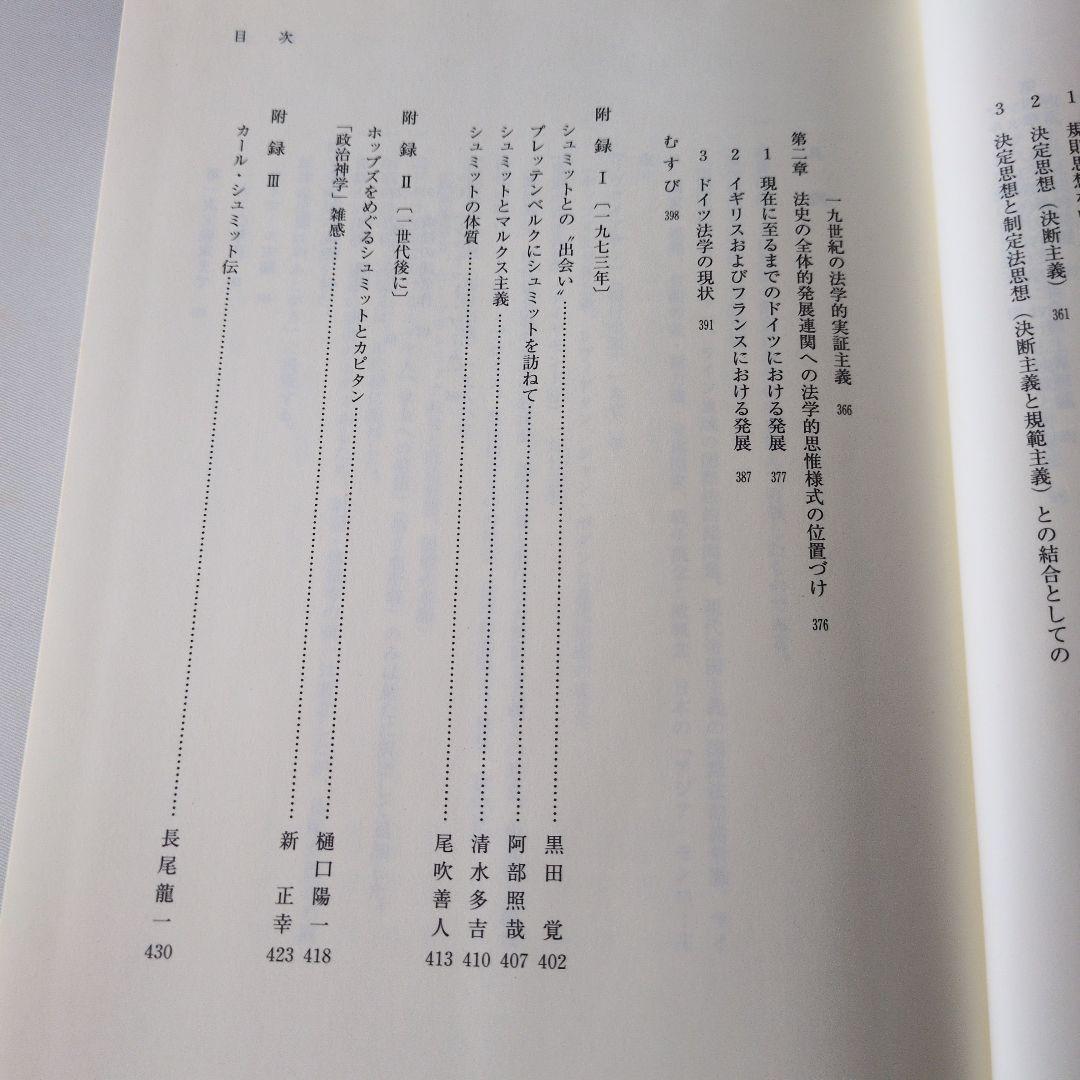 決定思想（決断主義） 361
3 決定思想と制定法思想（決断主義と規範主義）との結合としての
目次
一九世紀の法学的実証主義 366
第二章 法史の全体的発展連関への法学的思惟様式の位置づけ 376
1 現在に至るまでのドイツにおける発展 377
2 イギリスおよびフランスにおける発展 387
3 ドイツ法学の現状 391
むすび 398
附録Ⅰ〔一九七三年〕
シュミットとの〝出会い〟……黒田 覚 402
プレッテンベルクにシュミットを訪ねて……阿部照哉 407
シュミットとマルクス主義……清水多吉 410
シュミットの体質……尾吹善人 413
附録Ⅱ〔一世代後に〕
ホッブズをめぐるシュミットとカピタン……樋口陽一 418
「政治神学」雑感……新 正幸 423
附録Ⅲ
カール・シュミット伝……長尾龍一 430